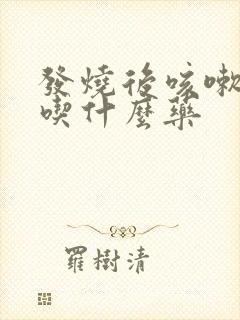 發燒後咳嗽
喫什麼藥
羅樹清